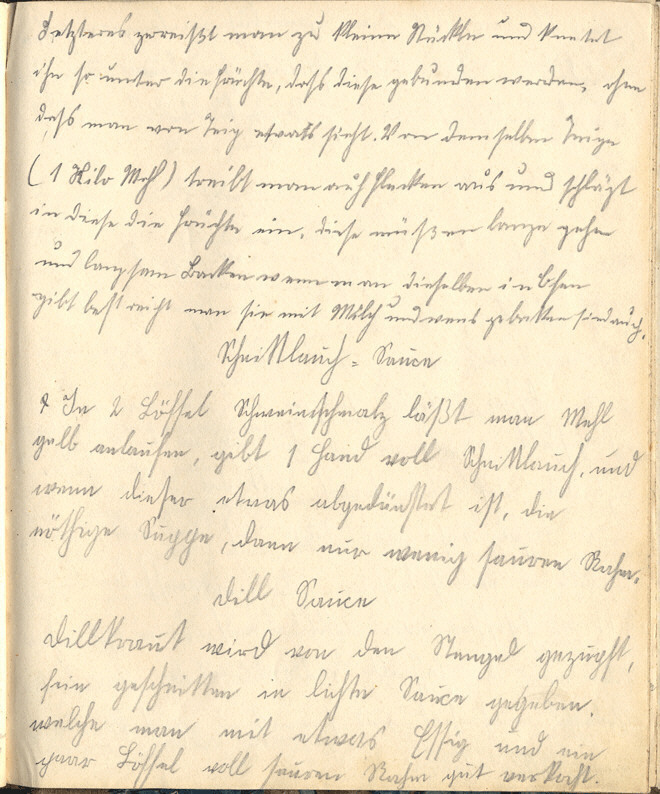 Letzteres zerreißt man zu kleinen Stückln und knetet
ihn so unter die Früchte, daß diese gebunden werden, ohne
daß man von Teig etwas sieht. Von demselben Teige
(1 Kilo Mehl) treibt man auch Flecken aus und schlägt
in diese die Früchte ein, diese müßen lange gehen
und langsam Backen wenn man dieselben in Ofen
gibt bestreicht man sie mit Milch und wens gebakken sind auch.
Schnittlauch-Sauce
In 2 Löffel Schweinschmalz läßt man Mehl
gelb anlaufen, gibt 1 Hand voll Schnittlauch, und
wenn dieser etwas abgedünstet ist, die
nöthige Suppe, dann nur wenig sauren Rahm.
Dill Sauce
Dillkraut wird von den Stengel gezupft,
fein geschnitten in lichte Sauce gegeben.
welche man mit etwas Essig und ein
paar Löffel voll sauren Rahm gut verkocht.